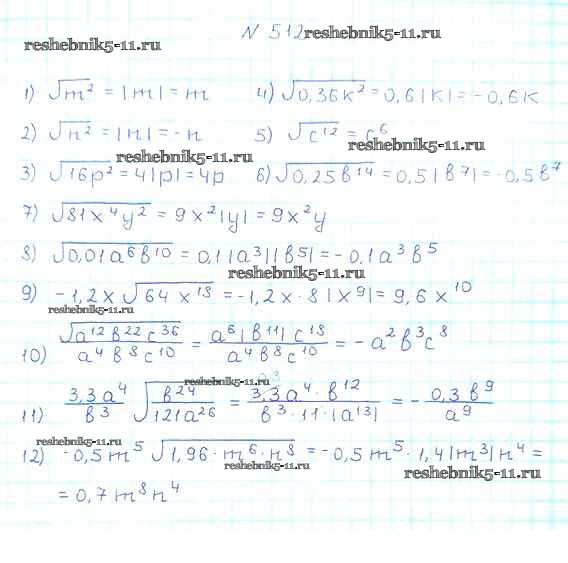 N 512 reshebnik5-11.ru
reshebnik5-11.ru
1) √m² = |m| = m 4) √0,36k² = 0,6|k| = -0,6k
2) √n² = |n| = -n 5) √c¹² = c⁶
reshebnik5-11.ru
3) √16p² = 4|p| = 4p 6) √0,25b¹⁴ = 0,5|b⁷| = -0,5b⁷
7) √81x⁴y² = 9x²|y| = 9x²y
8) √0,01a⁶b¹⁰ = 0,1|a³||b⁵| = -0,1a³b⁵
reshebnik5-11.ru
9) -1,2x √64x¹⁸ = -1,2x · 8|x⁹| = 9,6x¹⁰
reshebnik5-11.ru
10) √a¹²b²²c³⁶ / a⁴b⁸c¹⁰ = a⁶|b¹¹|c¹⁸ / a⁴b⁸c¹⁰ = -a²b³c⁸
reshebnik5-11.ru
11) 3,3a⁴ / b³ √b²⁴ / 121a²⁶ = 3,3a⁴ · b¹² / b³ · 11 · |a¹³| = - 0,3b⁹ / a⁹
reshebnik5-11.ru
12) -0,5m⁵ √1,96 · m⁶ · n⁸ = -0,5m⁵ · 1,4|m³|n⁴ =
reshebnik5-11.ru
reshebnik5-11.ru
= 0,7m⁸n⁴